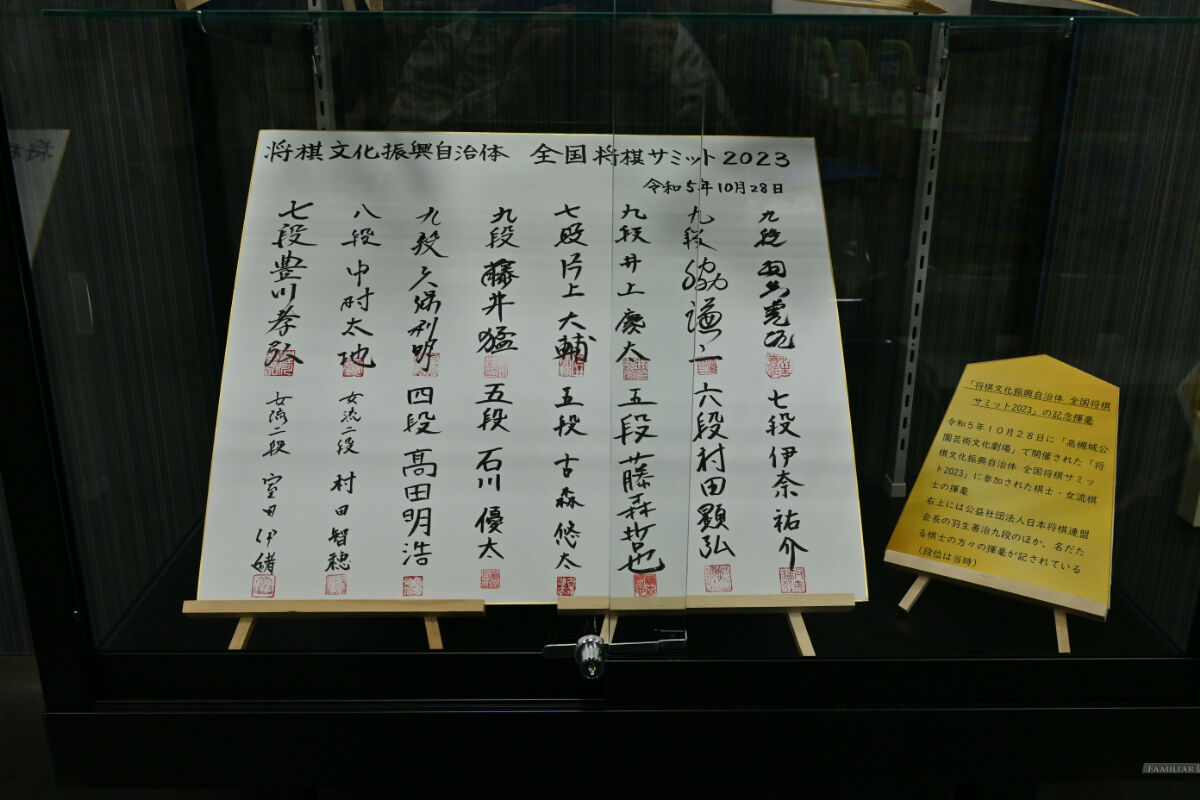 将棋文化振興自治体　全国将棋サミット2023
令和5年10月28日
九段 羽生善治
九段 脇謙二
九段 井上慶太
七段 片上大輔
九段 藤井猛
九段 久保利明
八段 中村太地
七段 豊川孝弘
七段 伊奈祐介
六段 村田顕弘
五段 藤森哲也
五段 古森悠太
五段 石川優太
四段 高田明浩
女流二段 村田智穂
女流二段 室田伊緒
「将棋文化振興自治体 全国将棋
サミット2023」の記念揮毫
令和5年10月28日に「高槻城公
園芸術文化劇場」で開催された「将
棋文化振興自治体 全国将棋サミッ
ト2023」に参加された棋士・女流棋
士の揮毫
右上には公益社団法人日本将棋連盟
会長の羽生善治九段のほか、名だた
る棋士の方々の揮毫が記されている
（段位は当時）
FAMILIAR